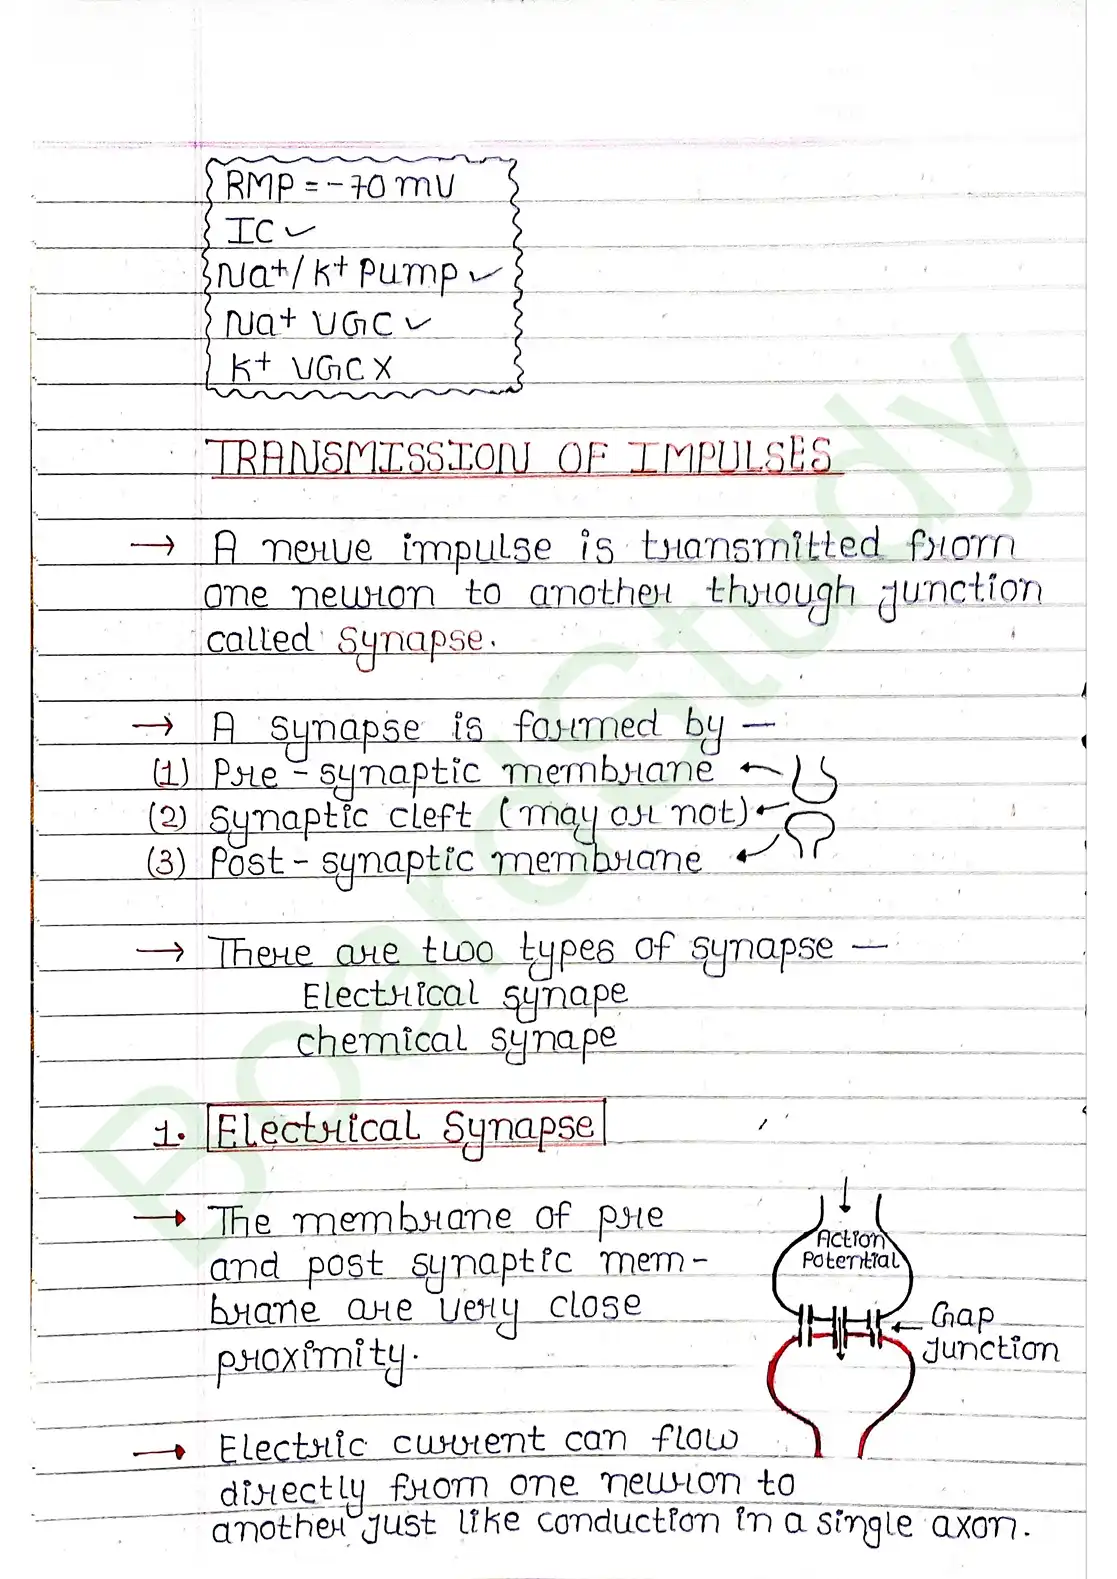 RMP = -70 mV
IC ✓
Na+/K+ Pump ✓
Na+ VGC ✓
K+ VGC X
TRANSMISSION OF IMPULSES
→ A nerve impulse is transmitted from
one neuron to another through junction
called synapse.
→ A synapse is formed by —
(1) Pre - synaptic membrane
(2) Synaptic cleft (may or not)
(3) Post - synaptic membrane
→ There are two types of synapse —
Electrical synape
chemical synape
1. Electrical Synapse
→ The membrane of pre
and post synaptic mem-
brane are very close
proximity.
Action
Potential
Gap
junction
→ Electric current can flow
directly from one neuron to
another just like conduction in a single axon.
BoardStudy